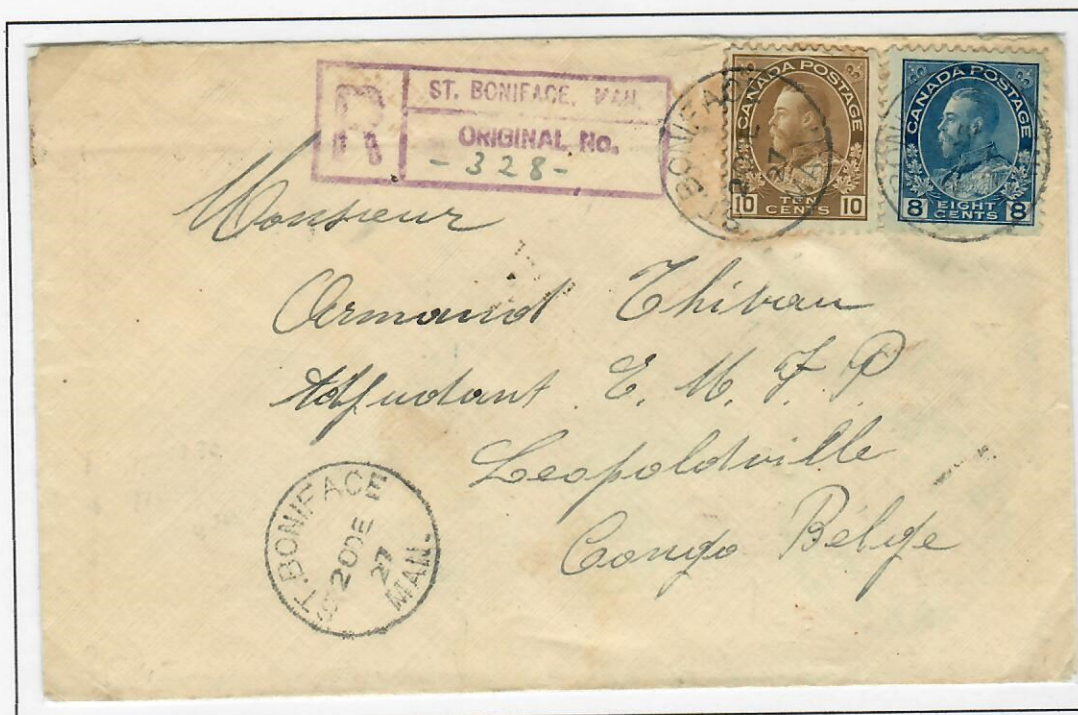 R
ST. BONIFACE, MAN.
ORIGINAL No.
- 328 -
ST. BONIFACE
20 DE
27
MAN.
CANADA POSTAGE
10 TEN CENTS 10
CANADA POSTAGE
8 EIGHT CENTS 8
Monsieur
Armand Thibau
Adjudant E. M. F. P
Leopoldville
Congo Bélge
ST. BONIFACE
20 DE
27
MAN.